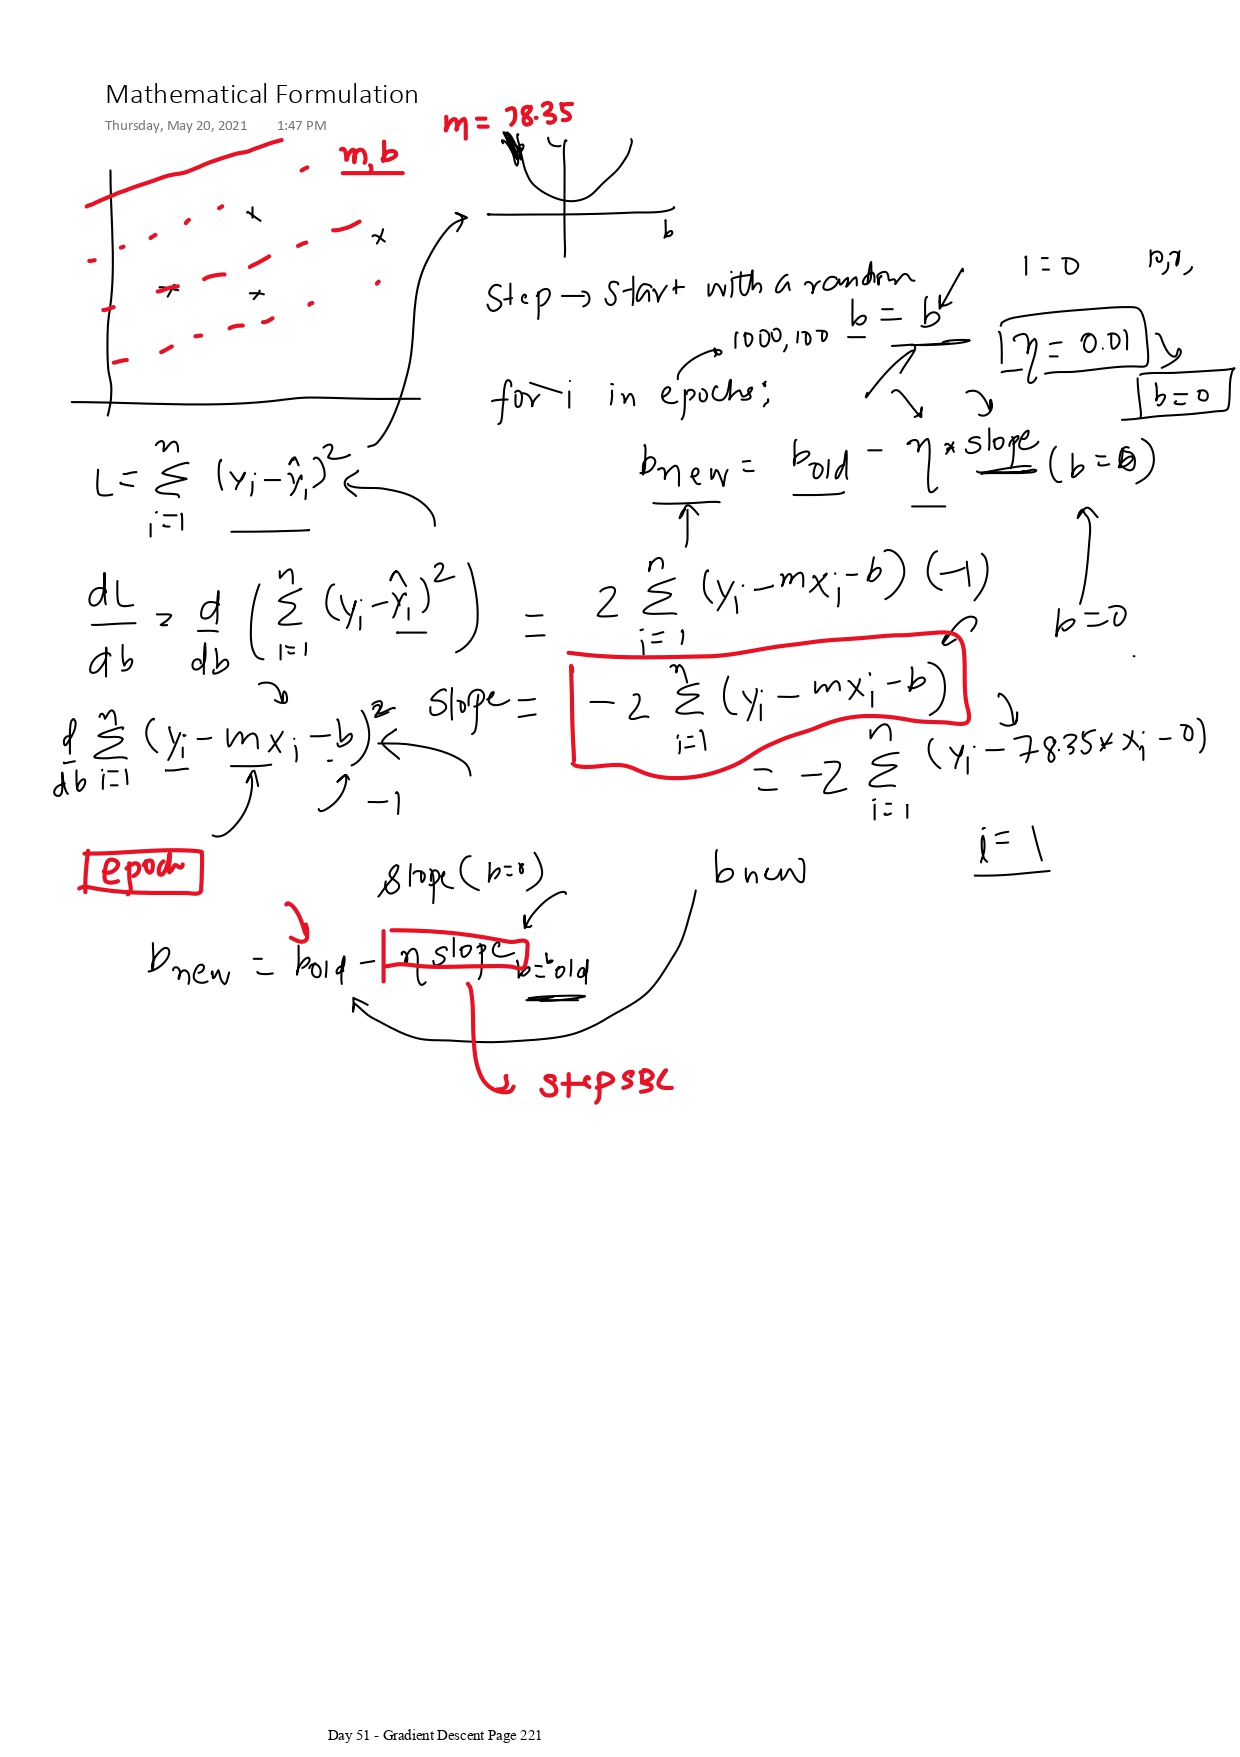 Mathematical Formulation
Thursday, May 20, 2021 1:47 PM
m = 78.35
m, b
L
b
Step → start with a random
b = b
i = 0
1000, 100
η = 0.01
for i in epochs:
b = 0
b new = b old - η * slope (b = 0)
L = Σ i=1 n (yi - ŷi)²
dL/db = d/db ( Σ i=1 n (yi - ŷi)² ) = 2 Σ i=1 n (yi - mxi - b) (-1)
b = 0
slope = -2 Σ i=1 n (yi - mxi - b)
d/db Σ i=1 n (yi - mxi - b)²
= -2 Σ i=1 n (yi - 78.35 * xi - 0)
-1
i = 1
epoch
slope (b=0)
b new
b new = b old - η slope b = b old
step
Day 51 - Gradient Descent Page 221